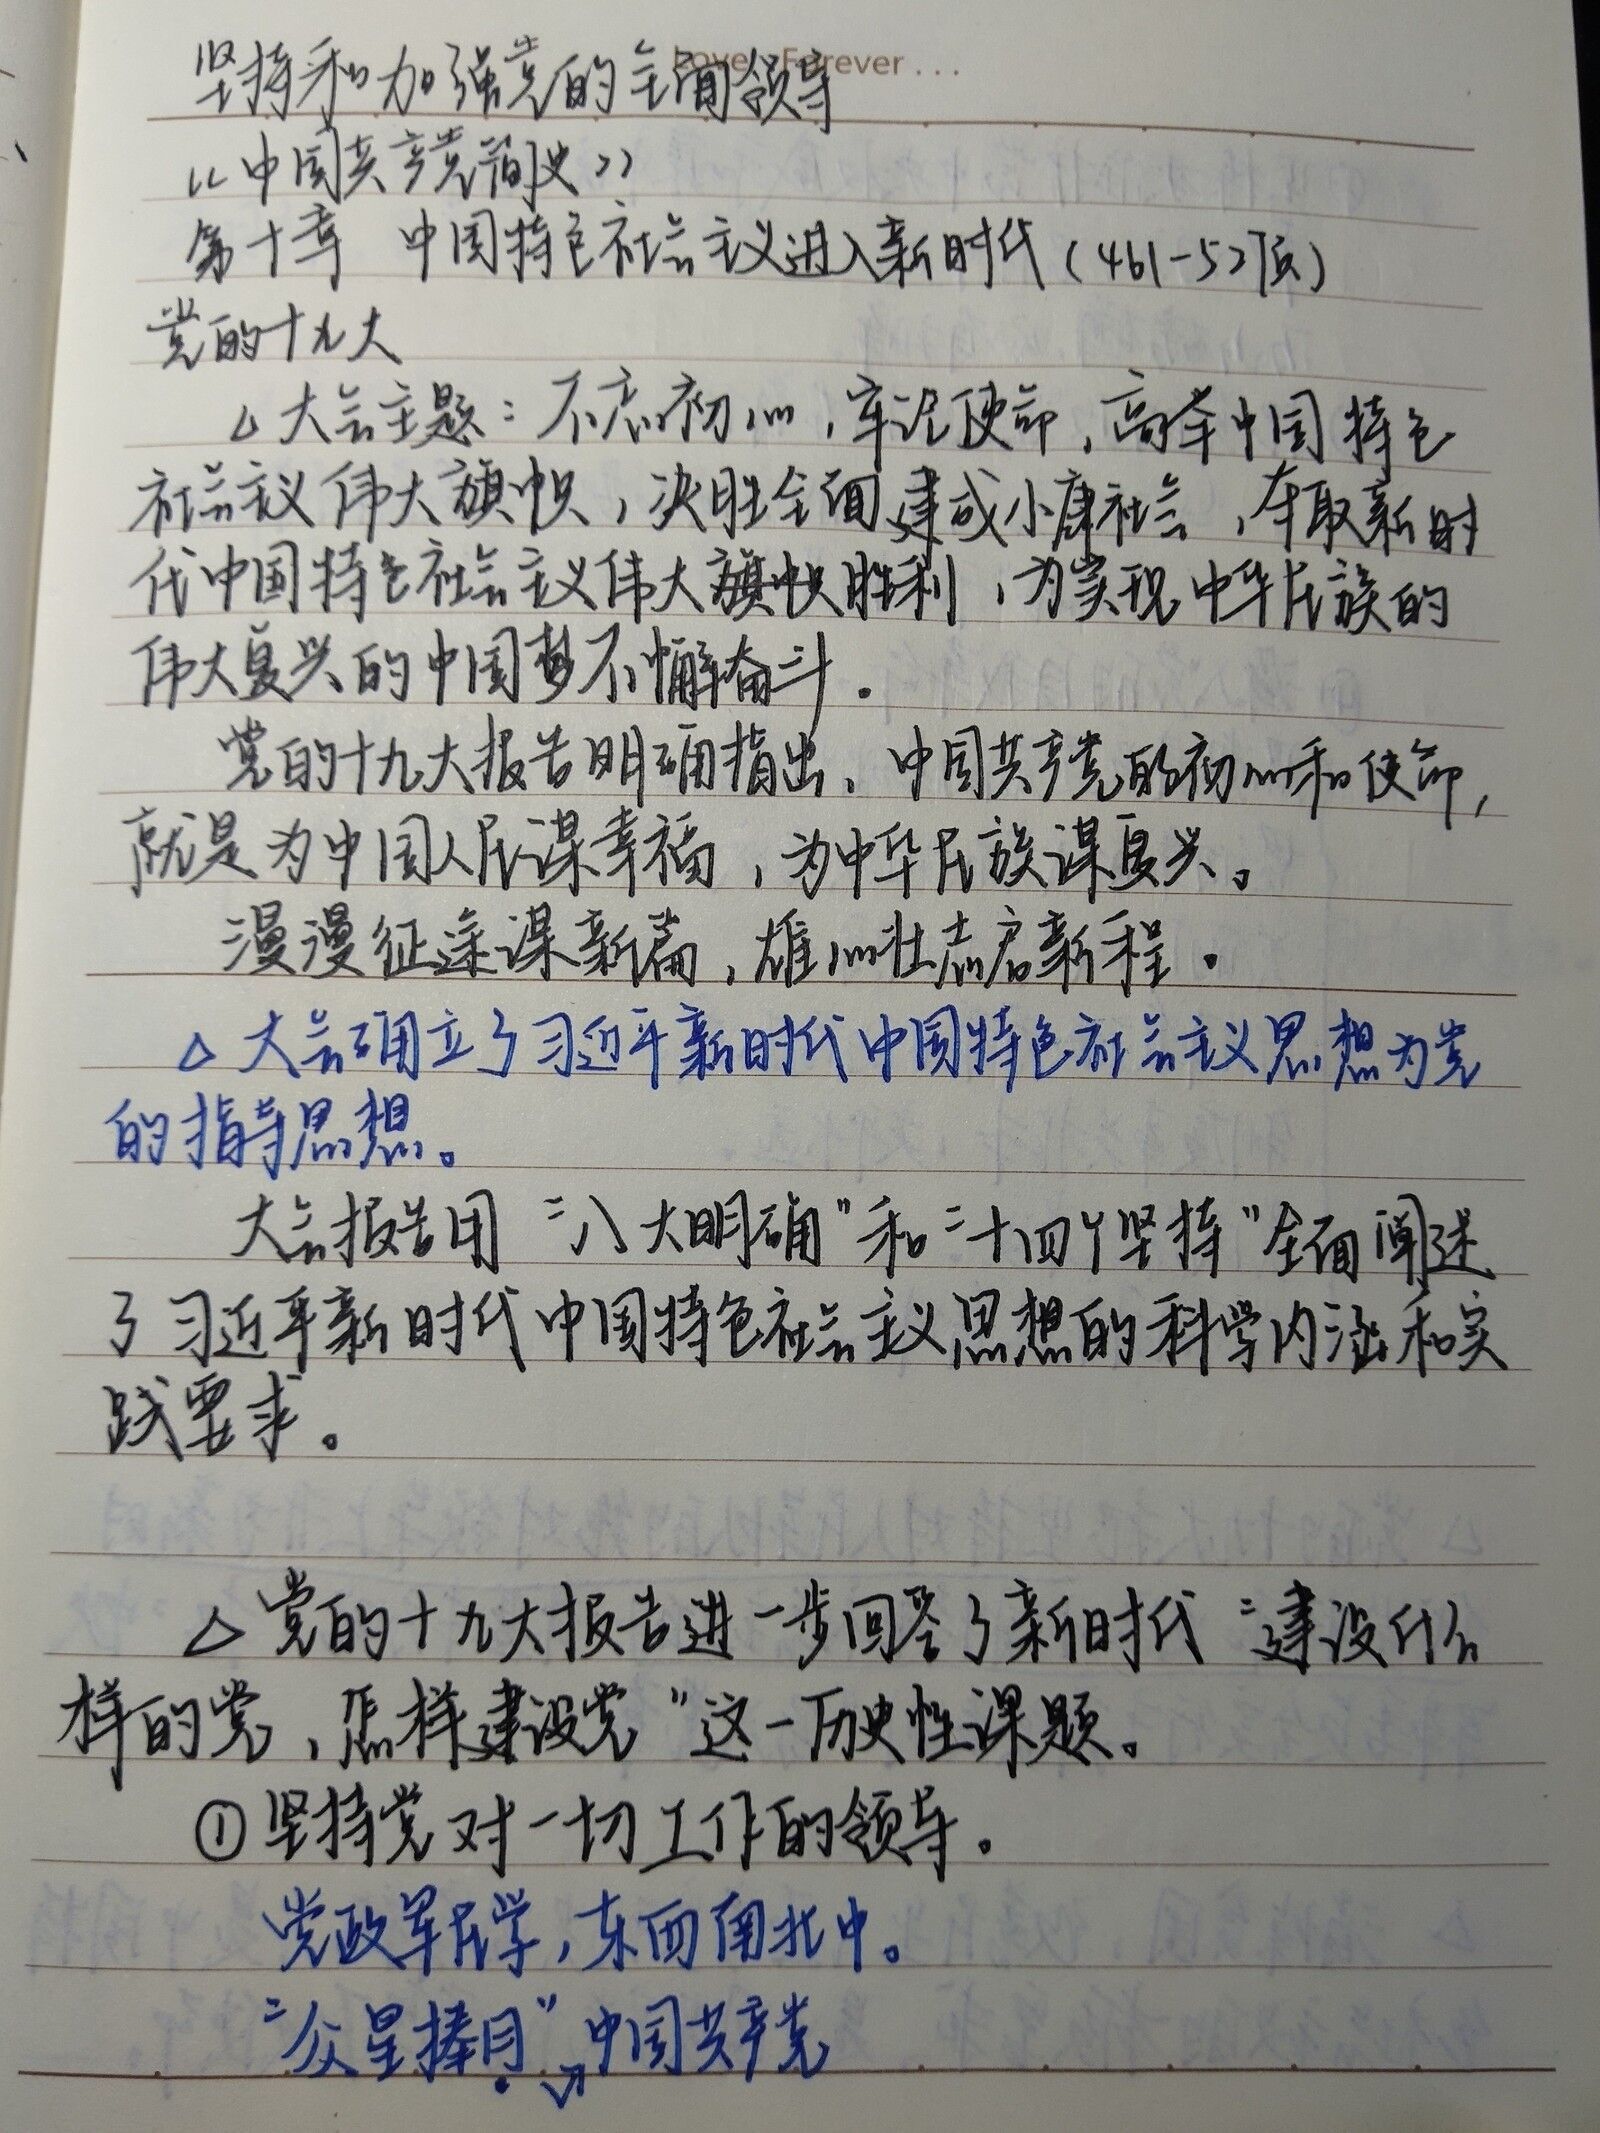 Love Forever...
坚持和加强党的全面领导
《中国共产党简史》
第十章 中国特色社会主义进入新时代(461-527页)
党的十九大
△大会主题:不忘初心,牢记使命,高举中国特色
社会主义伟大旗帜,决胜全面建成小康社会,夺取新时
代中国特色社会主义伟大旗帜胜利,为实现中华民族的
伟大复兴的中国梦不懈奋斗.
党的十九大报告明确指出、中国共产党的初心和使命,
就是为中国人民谋幸福,为中华民族谋复兴。
漫漫征途谋新篇,雄心壮志启新程.
△大会确立了习近平新时代中国特色社会主义思想为党
的指导思想。
大会报告用“八大明确”和“十四个坚持”全面阐述
了习近平新时代中国特色社会主义思想的科学内涵和实
践要求。
△党的十九大报告进一步回答了新时代“建设什么
样的党,怎样建设党”这一历史性课题。
①坚持党对一切工作的领导.
党政军民学,东西南北中。
“众星捧月”→中国共产党